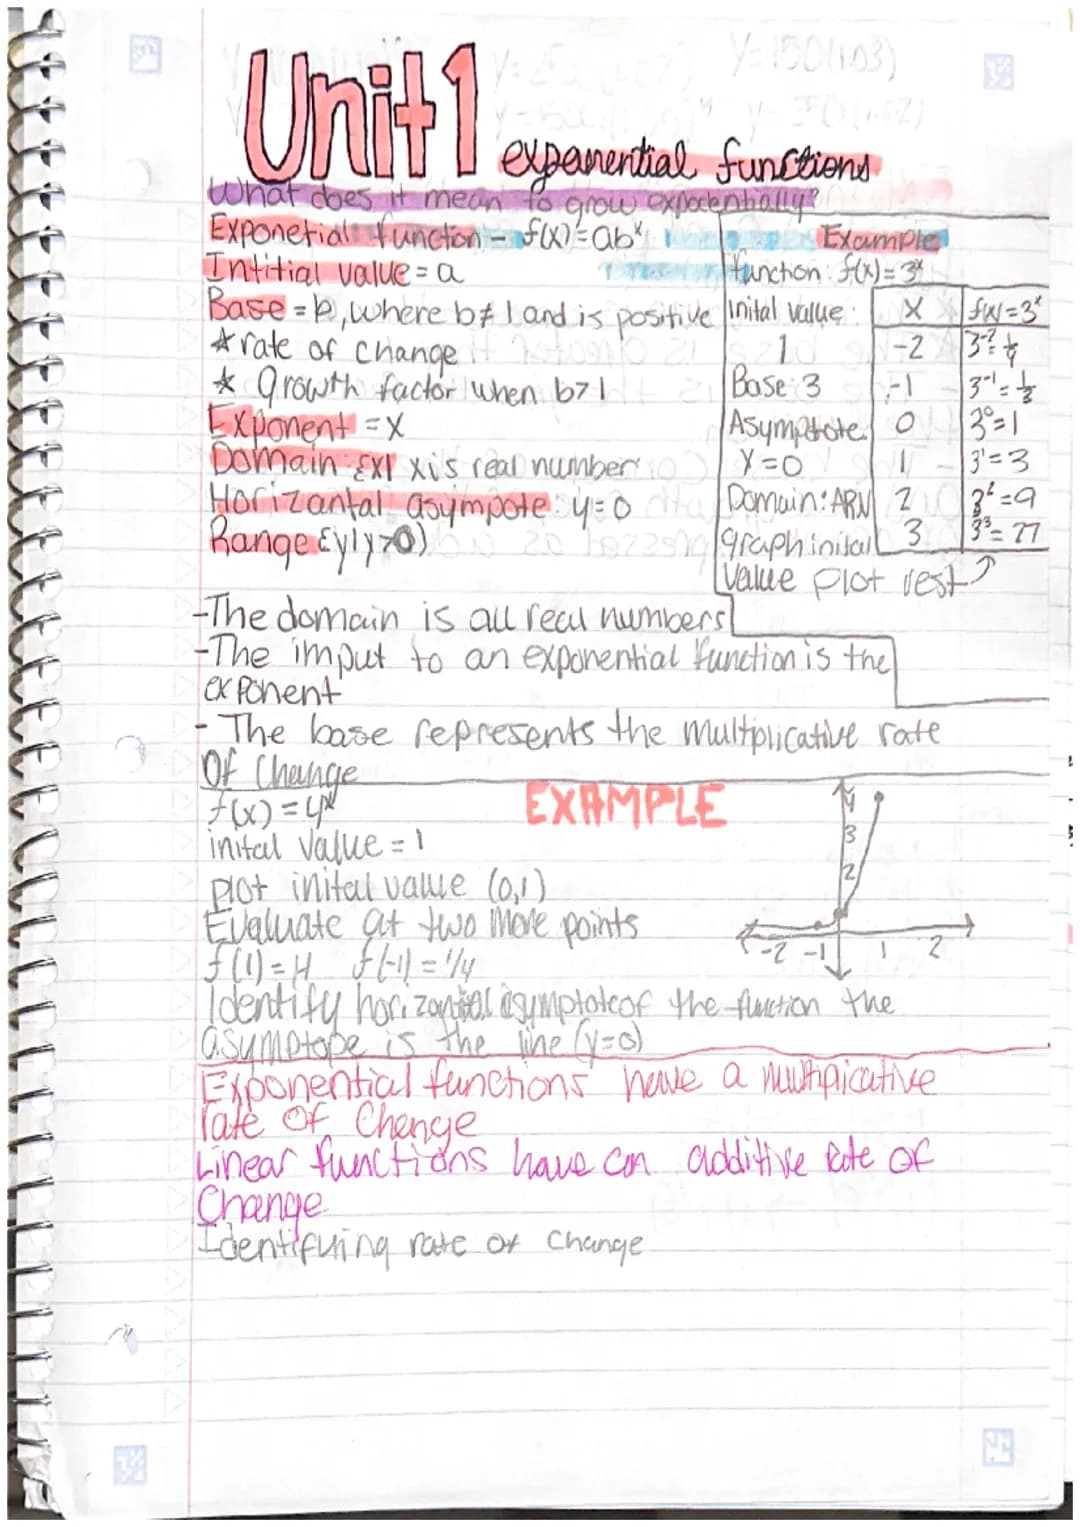 Unit 1
exponential functions
What does it mean to grow expotentially?
Exponetial function - f(x)=abˣ
Intitial value = a
Base = b, where b≠1 and is positive
★ rate of change
★ Growth factor when b>1
Exponent = X
Domain: {x| x is real number
Horizantal asympote: y=0
Range {y|y>0)
Example
function: f(x)=3ˣ
Inital value:
1
Base: 3
Asymptote
Y=0
Domain: ARN
graph inital
value plot rest
X f(x)=3ˣ
-2 3⁻²=
-1 3⁻¹=⅓
0 3⁰=1
1 3¹=3
2 3²=9
3 3³=27
-The domain is all real numbers
-The imput to an exponential function is the
exponent
- The base represents the multplicative rate
Of Change
EXAMPLE
f(x) = 4ˣ
inital value = 1
plot inital value (0,1)
Evaluate at two more points
f(1)=4 f(-1)=1/4
Identify horizantal asymptote of the function the
asymptope is the line (y=0)
4
3
2
-2 -1 1 2
Exponential functions have a multipicative
rate of Change
Linear functions have an additive Rate of
Change
Identifying rate of change
Y=150(1.03)